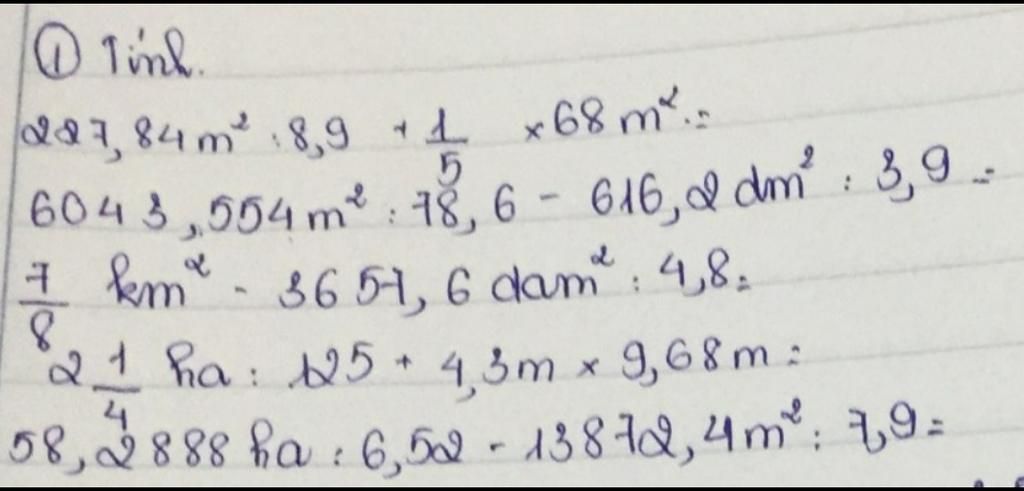 ① Tính.
227,84m² : 8,9 + 1/5 × 68m² =
6043,554m² : 78,6 - 616,2dm² : 3,9 =
7/8 km² - 3657,6 dam² : 4,8 =
2 1/4 ha : 125 + 4,3m × 9,68m =
58,2888ha : 6,52 - 13872,4m² : 7,9 =